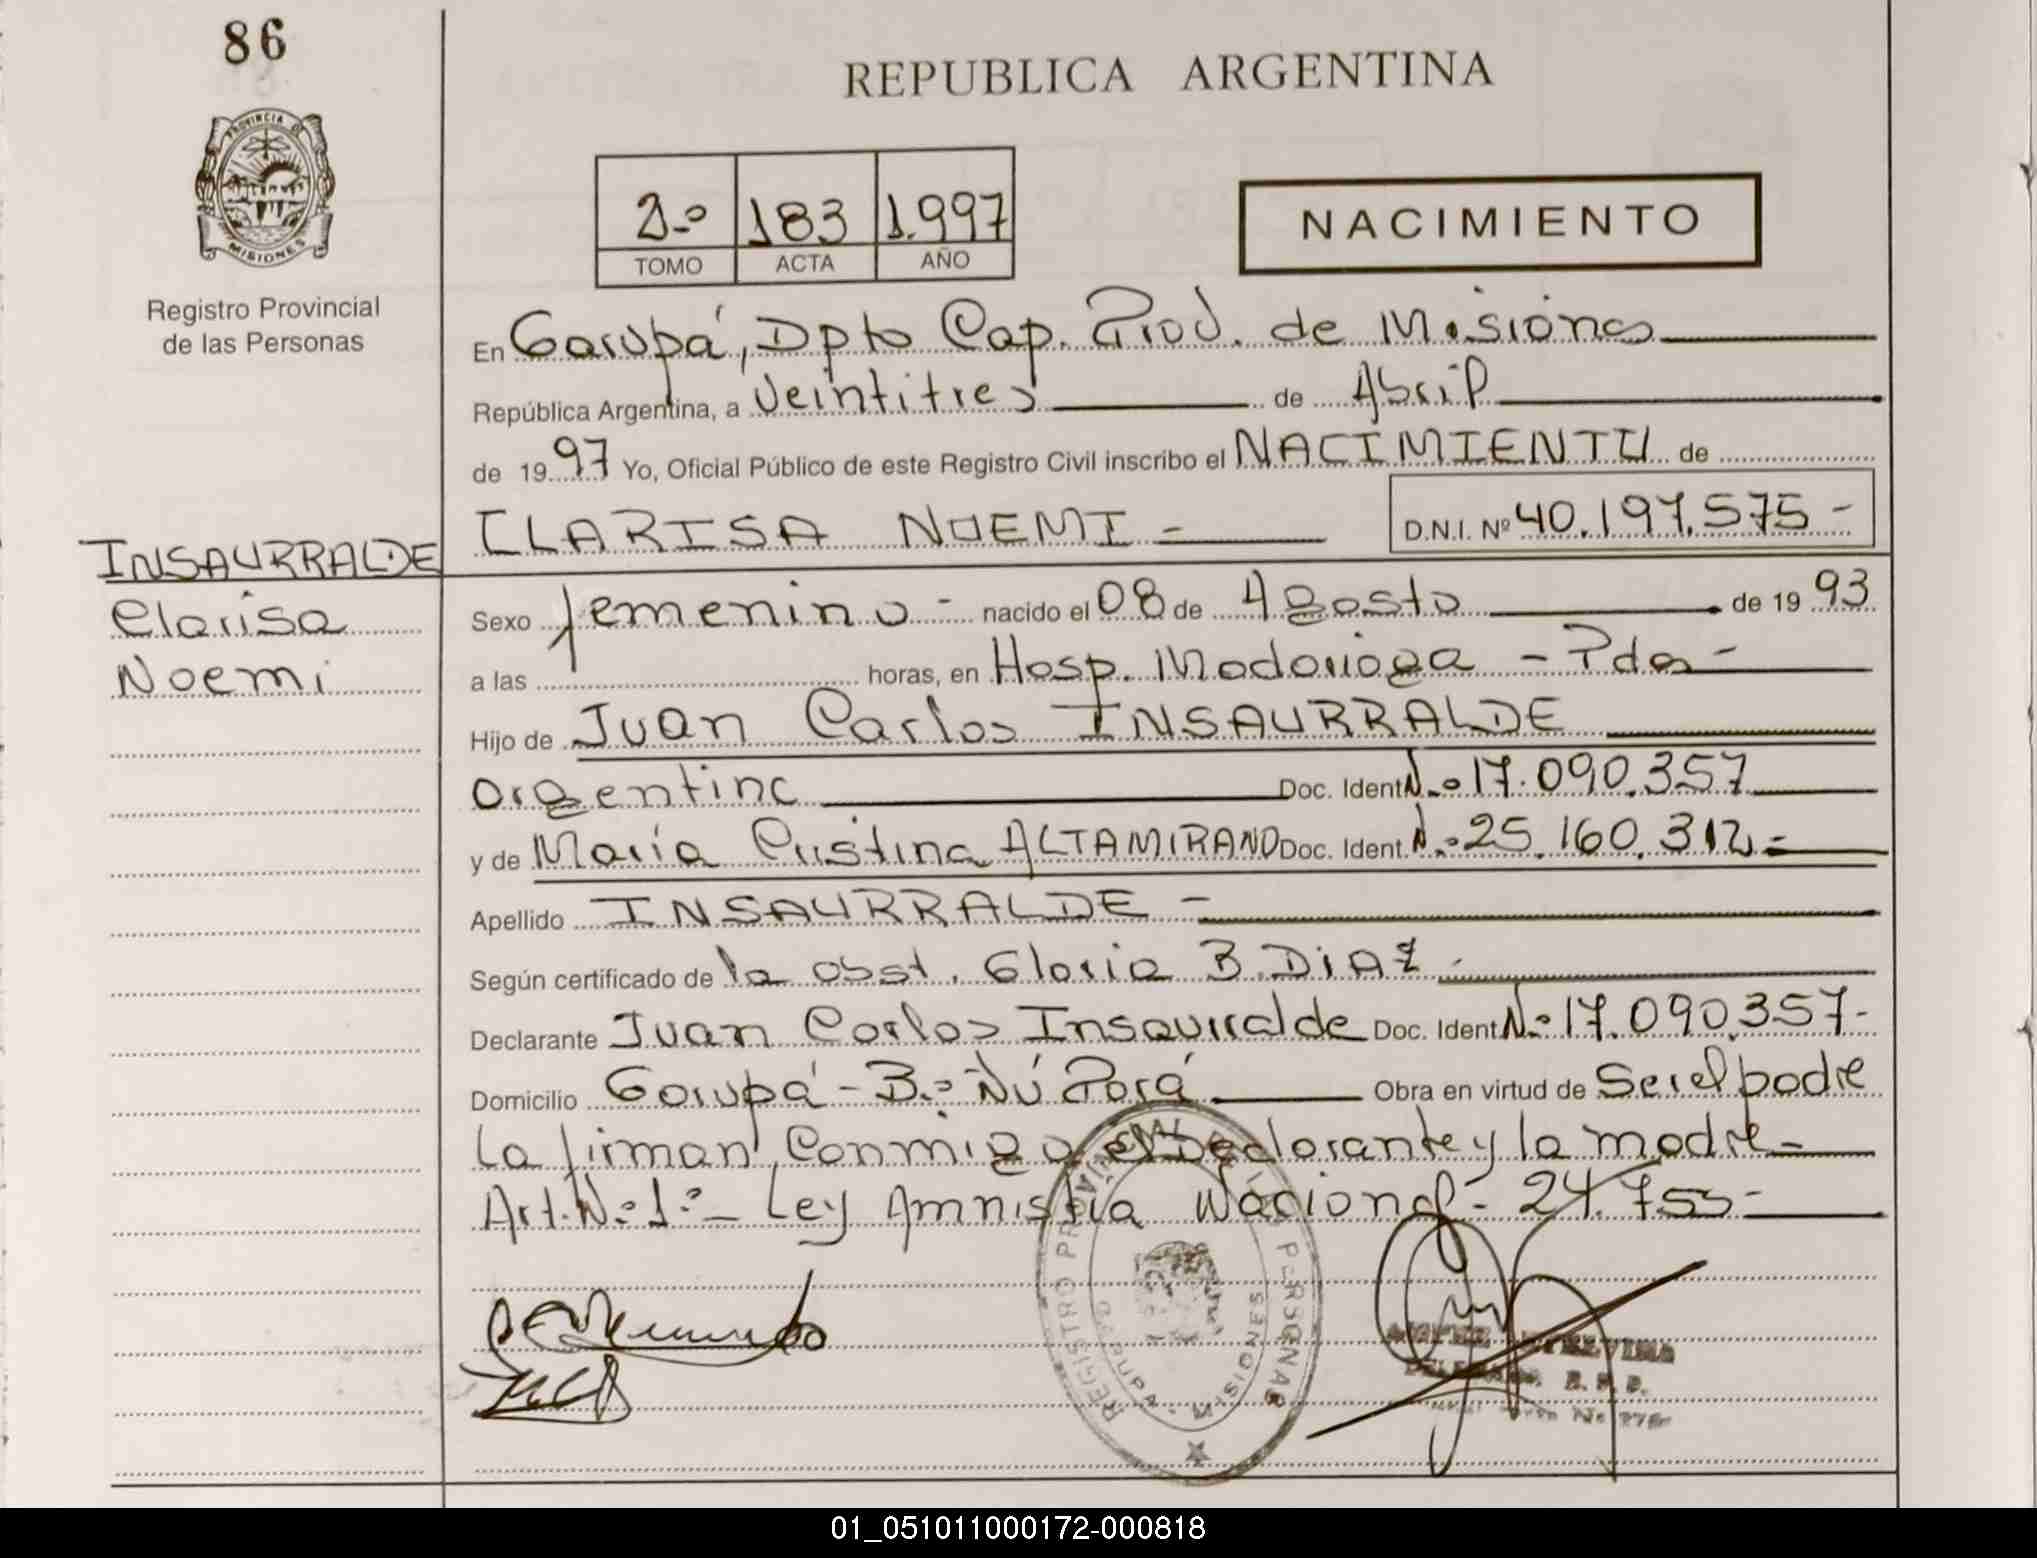 86
PROVINCIA DE
MISIONES
Registro Provincial
de las Personas
REPUBLICA ARGENTINA
2º 183 1.997
TOMO ACTA AÑO
NACIMIENTO
En Garupá, Dpto Cap. Prov. de Misiones
República Argentina, a Veintitres de Abril
de 1997 Yo, Oficial Público de este Registro Civil inscribo el NACIMIENTO de
CLARISA NOEMI - D.N.I. Nº 40.197.575-
INSAURRALDE
Clarisa
Noemi
Sexo femenino - nacido el 08 de Agosto de 1993
a las horas, en Hosp. Madariaga - Pdas -
Hijo de Juan Carlos INSAURRALDE
argentina Doc. Ident Nº 17.090.357
y de María Cristina ALTAMIRANO Doc. Ident. Nº 25.160.312 =
Apellido INSAURRALDE -
Según certificado de la obst. Gloria B. DIAZ.
Declarante Juan Carlos Insaurralde Doc. Ident. Nº 17.090.357-
Domicilio Garupá - Bº Ñú Porá Obra en virtud de Ser el padre
La firman conmigo el Declarante y la madre=
Art. Nº 1º - Ley Amnistía Nacional - 24.755 -
REGISTRO PROVINCIAL DE LAS PERSONAS
GARUPA - MISIONES
01_051011000172-000818